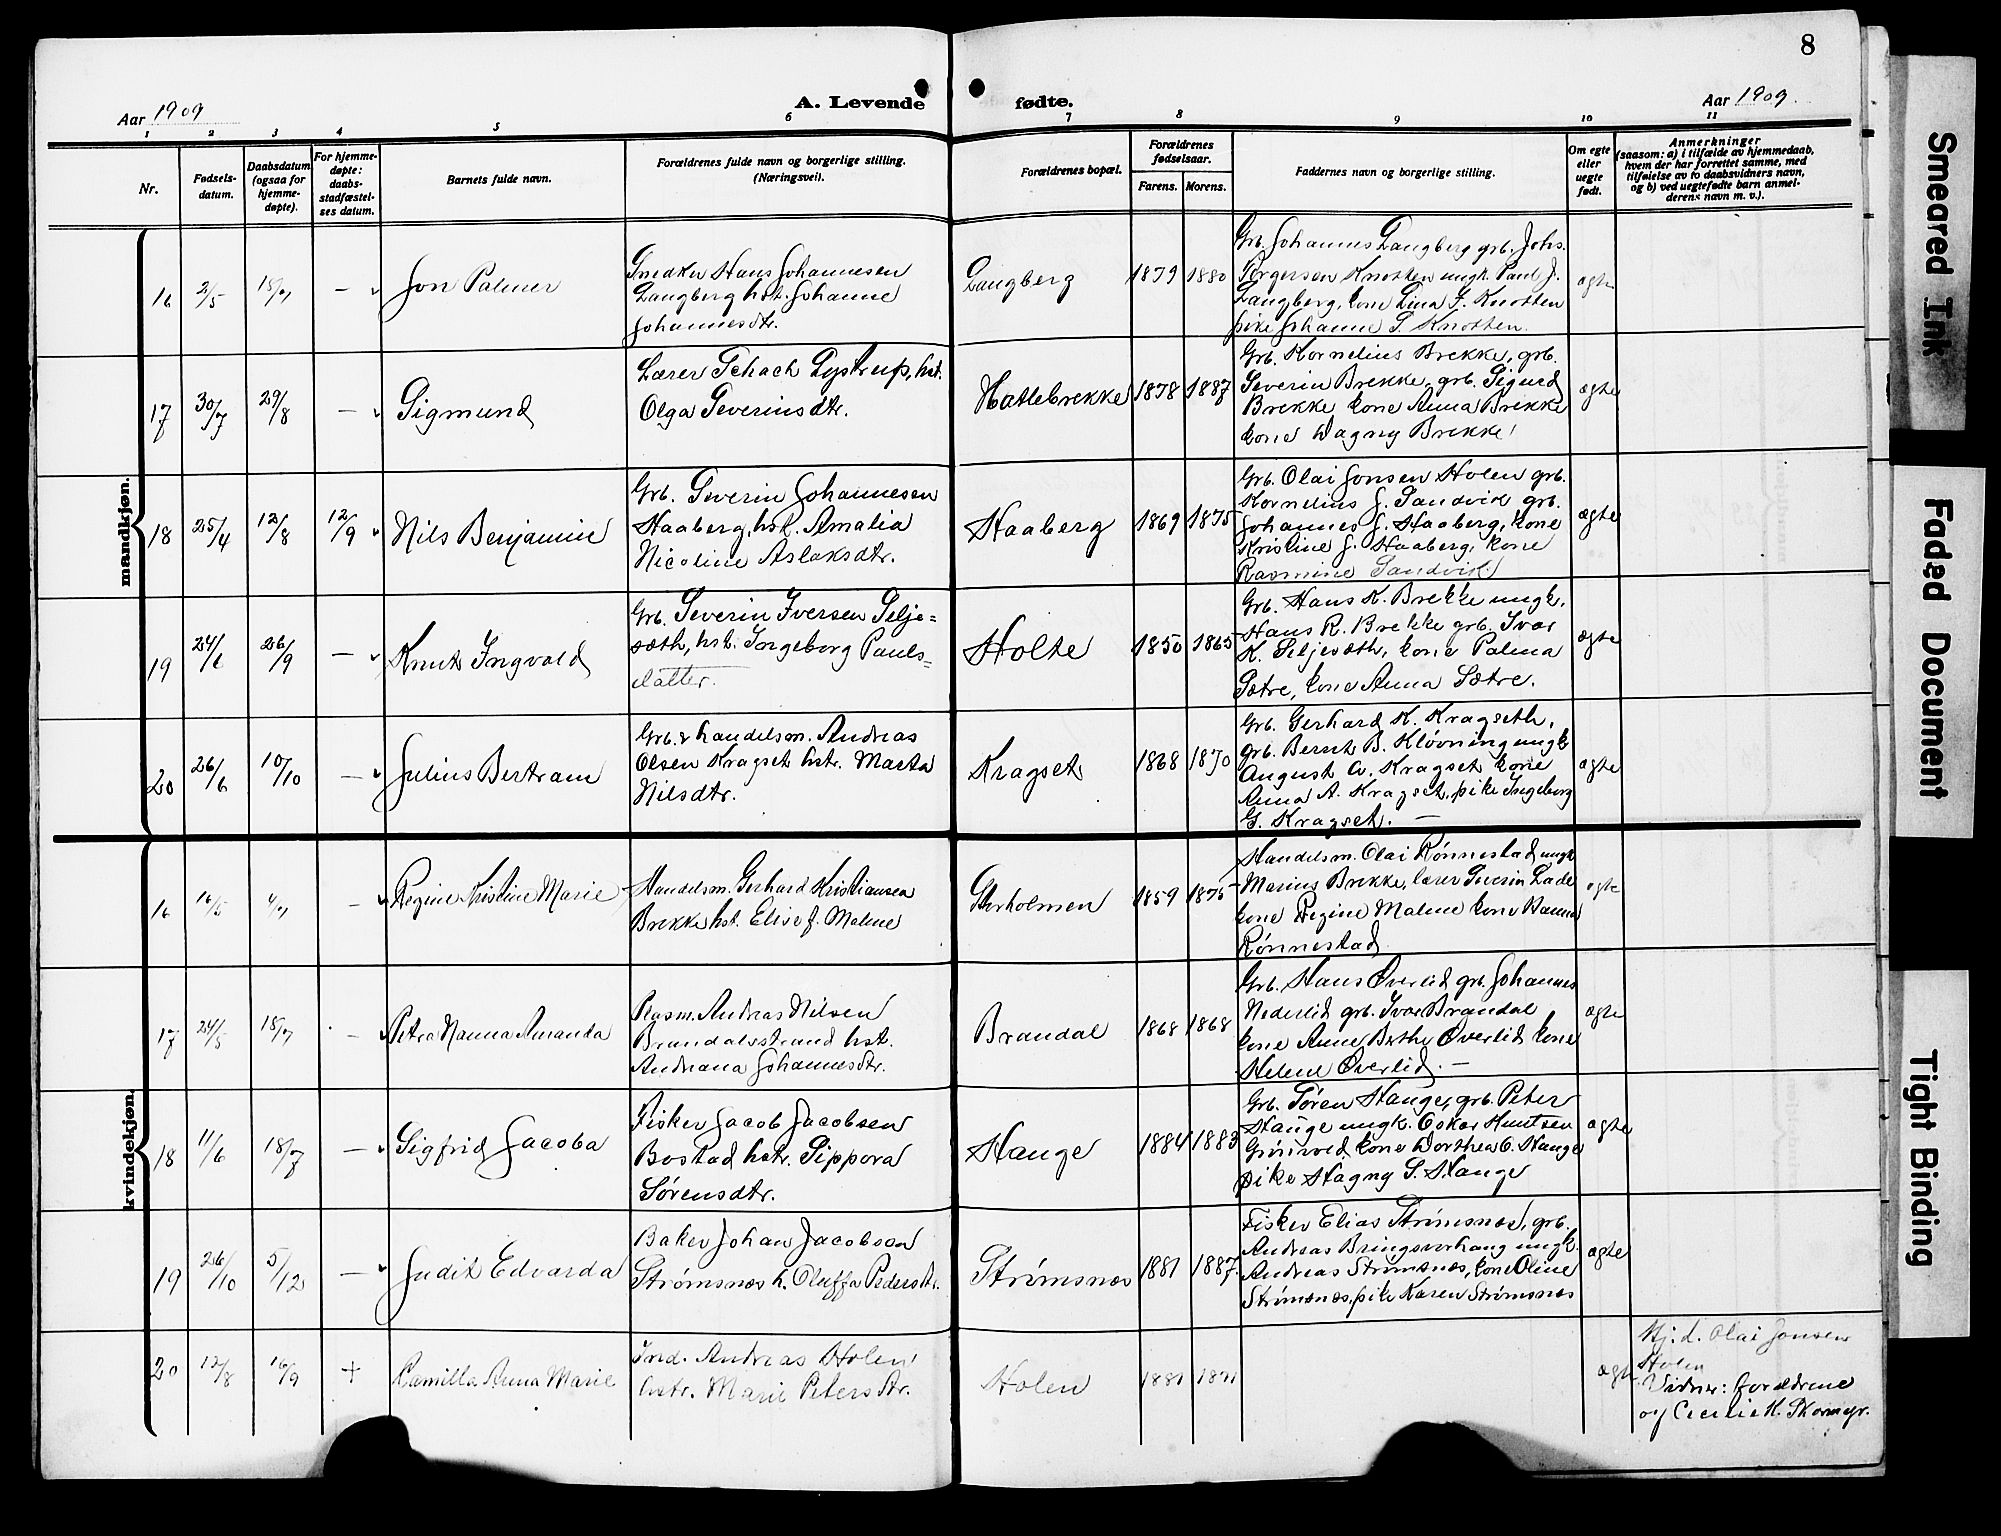 8
Aar 1909
A. Levende fødte.
Aar 1909.
1 2 3 4 5 6 7 8 9 10 11
Nr.
Fødsels-
datum.
Daabsdatum
(ogsaa for
hjemme-
døpte).
For hjemme-
døpte:
daabs-
stadfæstel-
ses datum.
Barnets fulde navn.
Forældrenes fulde navn og borgerlige stilling.
(Næringsvei).
Forældrenes bopæl.
Forældrenes
fødselsaar.
Farens. Morens.
Faddernes navn og borgerlige stilling.
Om egte
eller
uegte
født.
Anmerkninger
(saasom: a) i tilfælde av hjemmedaab,
hvem der har forrettet samme, med
tilføielse av to daabsvidners navn,
og b) ved uegtefødte barn anmel-
derens navn m. v.).
mandkjøn.
16 2/5 18/7 —
Jon Palmer
Snedker Hans Johannesen
Langberg hst. Johanne
Johannesdtr.
Langberg
1879 1880
Grb. Johannes Langberg grb. Johs.
Torgersen Knotten ungk. Paul J.
Langberg, kone Lina J. Knotten
pike Johanne S. Knotten.
ægte
17 30/7 29/8 —
Sigmund
Lærer Schach Lystrup, hst.
Olga Severinsdtr.
Hatlebrekke
1878 1887
Grb. Kornelius Brekke, grb.
Severin Brekke, grb. Sigurd
Brekke kone Anna Brekke
kone Dagny Brekke
ægte
18 25/4 12/8 12/9
Nils Benjamin
Grb. Severin Johannesen
Haaberg, hst. Amalia
Nicoline Aslaksdtr.
Haaberg
1869 1875
Grb. Olai Jonsen Holen grb.
Kornelius J. Sandvik grb.
Johannes J. Haaberg, kone
Kristine J. Haaberg, kone
Rasmine Sandvik
ægte
19 24/6 26/9 —
Knut Ingvald
Grb. Severin Iversen Selje=
sæth, hst. Ingeborg Pauls=
datter.
Holte
1850 1865
Grb. Hans K. Brekke ungk.
Hans R. Brekke grb. Ivar
K. Seljesæth, kone Palma
Sætre, kone Anna Sætre.
ægte
20 26/6 10/10 —
Julius Bertram
Grb. & handelsm. Andreas
Olsen Kragset hst. Marta
Nilsdtr.
Kragset
1868 1870
Grb. Gerhard K. Kragseth,
grb. Bernt B. Kløvning ungk
August A. Kragset kone
Anna A. Kragset, pike Ingeborg
G. Kragset. —
ægte
kvindekjøn.
16 16/5 4/7 —
Regine Kristine Marie
Handelsm. Gerhard Kristiansen
Brekke hst. Elise f. Malene
Storholmen
1859 1875
Handelsm. Olai Rønnestad ungk
Marius Brekke, lærer Severin Lade
kone Regine Malene kone Hanna
Rønnestad
ægte
17 24/5 18/7 —
Petra Nanna Amanda
Rasm. Andreas Nilsen
Brandalsstrand hst.
Andriana Johannesdtr.
Brandal
1868 1868
Grb. Hans Overlid grb. Johannes
Nederlid grb. Ivar Brandal
kone Anne Berthe Overlid kone
Helene Overlid. —
ægte
18 11/6 18/7 —
Sigfrid Jacoba
Fisker Jacob Jacobsen
Bostad hstr. Sippora
Sørensdtr.
Hauge
1884 1883
Grb. Søren Hauge, grb. Peter
Hauge ungk. Oskar Knutsen
kone Dorthea O. Hauge
pike Hagny S. Hauge
ægte
19 26/10 5/12 —
Judit Edvarda
Baker Johan Jacobsen
Strømsnæs h. Oluffa Pedersdtr.
Strømsnæs
1881 1887
Fisker Elias Strømsnæs, grb.
Andreas Bringsvorhaug ungk.
Andreas Strømsnæs, kone Oline
Strømsnæs, pike Karen Strømsnæs
ægte
20 12/8 16/9 +
Camilla Anna Marie
Ind. Andreas Holen
hstr. Marie Petersdtr.
Holen
1881
ægte
Hj. d. Olai Jonsen
Holen
Vidner: forældrene
og Cecilie H. Skormyr.
Smeared Ink
Faded Document
Tight Binding